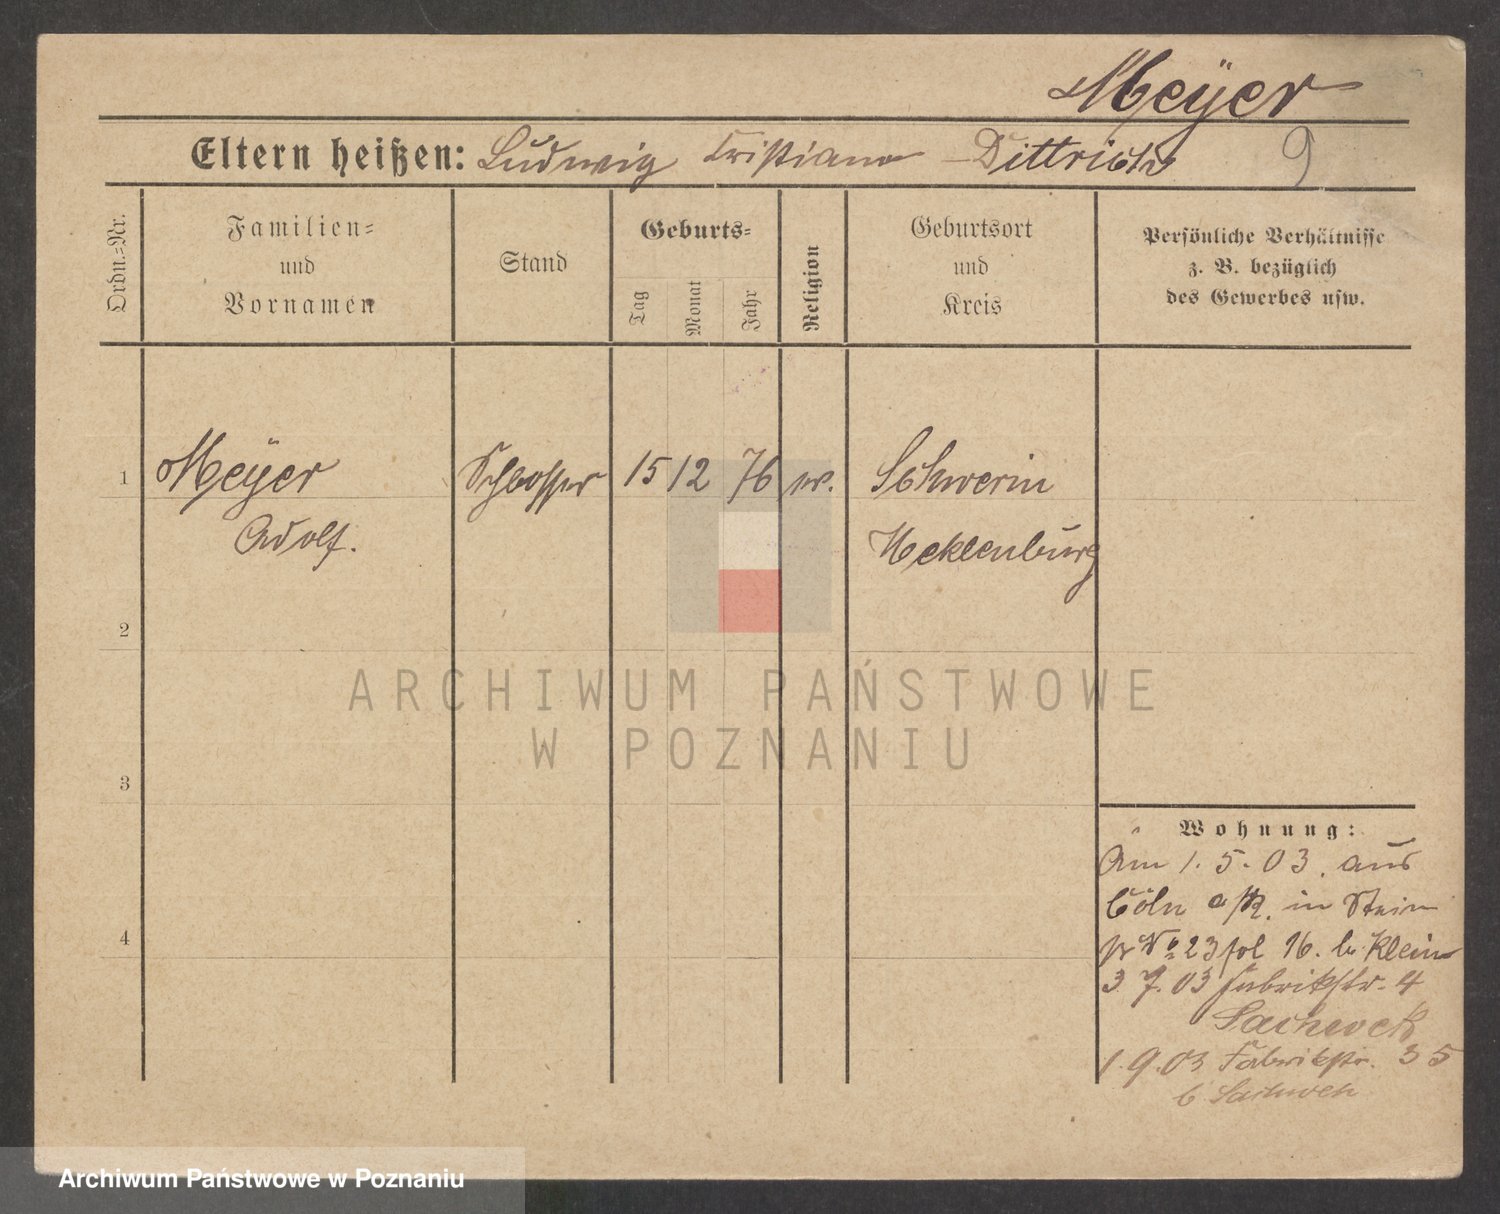 Meÿer
Eltern heißen: Ludwig Cristiane – Dittrich 9
Ordn.=Nr.
Familien=
und
Vornamen
Stand
Geburts=
Tag
Monat
Jahr
Religion
Geburtsort
und
Kreis
Persönliche Verhältnisse
z. B. bezüglich
des Gewerbes usw.
1 Meÿer Schlosser 15 12 76 ev. Schwerin
Adolf. Mecklenburg
2
3
4
Wohnung:
Am 1. 5. 03. aus
Cöln a/R. in
No 23 fol 16. b. Klein
3 7. 03 Fabrikstr. 4
1. 9. 03 Fabrikstr. 35
b
ARCHIWUM PAŃSTWOWE
W POZNANIU
Archiwum Państwowe w Poznaniu